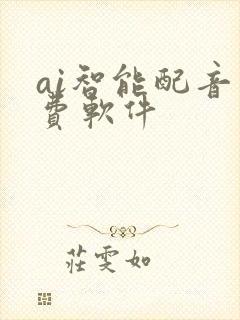 ai智能配音
費軟件
莊雯如